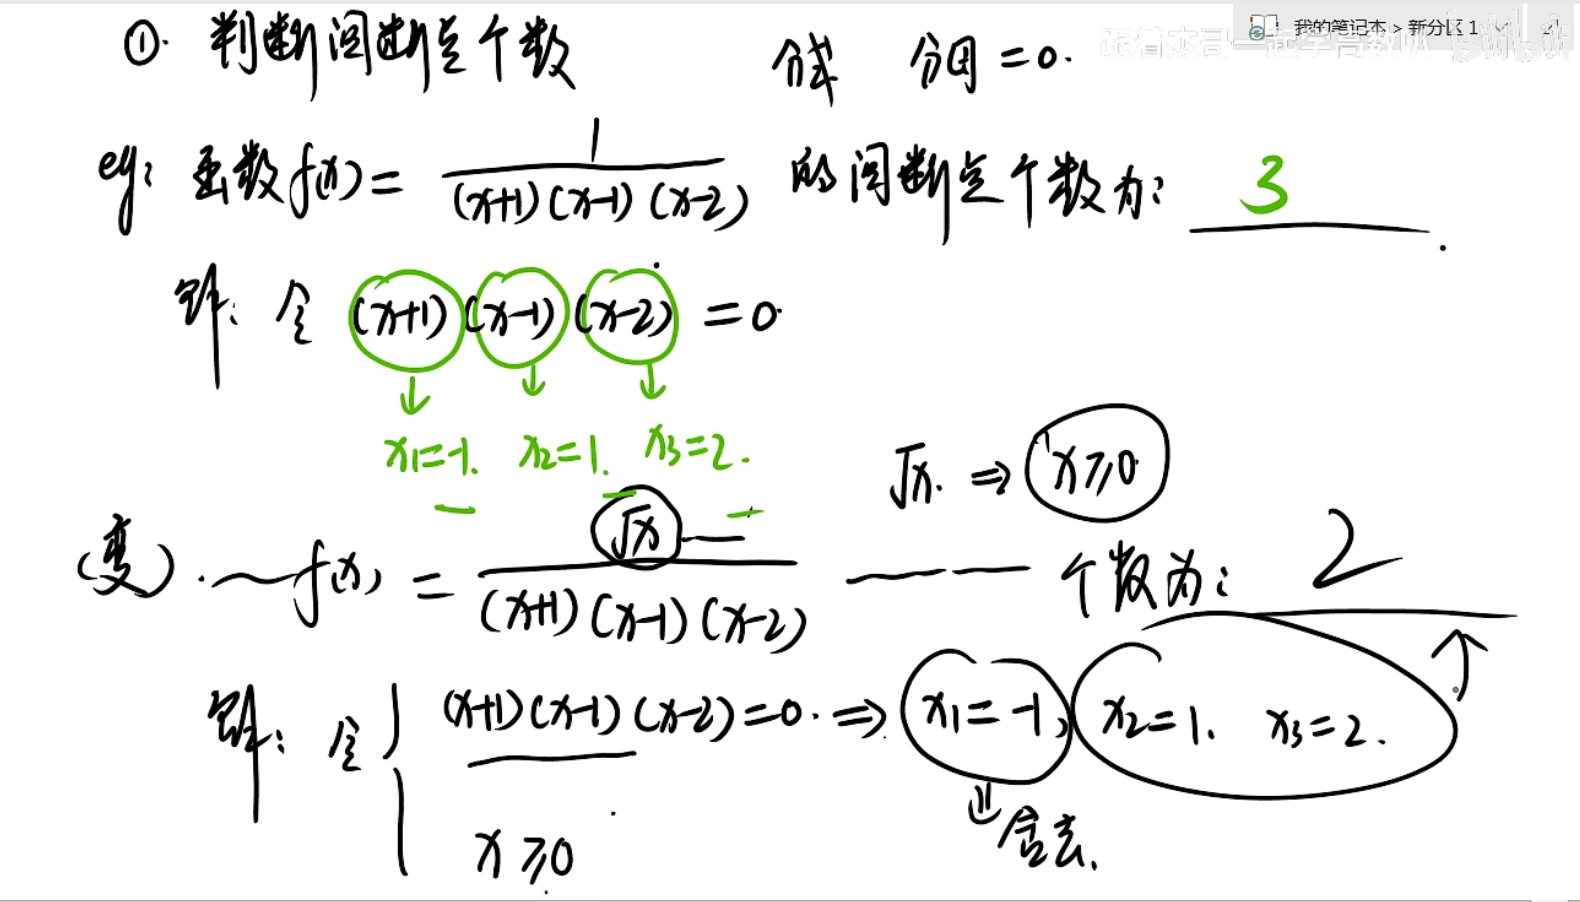 我的笔记本 > 新分区 1
跟着杰哥一起学高数叭 bilibili
①. 判断间断点个数 分式 分母=0.
eg: 函数f(x)= 1/((x+1)(x-1)(x-2)) 的间断点个数为: 3.
解: 令 (x+1)(x-1)(x-2) =0.
x₁=-1. x₂=1. x₃=2.
√x. ⇒ x≥0
(变). f(x) = √x/((x+1)(x-1)(x-2)) 个数为: 2
解: 令 { (x+1)(x-1)(x-2)=0. ⇒ x₁=-1, x₂=1. x₃=2.
x≥0
舍去.